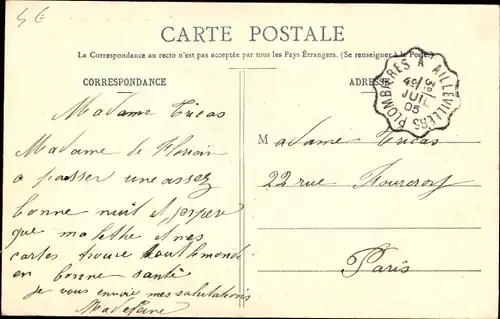 4€
CARTE POSTALE
La Correspondance au recto n'est pas acceptée par tous les Pays Étrangers. (Se renseigner à la Poste)
CORRESPONDANCE
ADRESSE
PLOMBIÈRES A AILLEVILLERS
JUIL
05
Madame Tricas
Madame de Florian
a passer une assez
bonne nuit et j'espere
que ma lettre et mes
cartes trouve tout le monde
en bonne santé
je vous envoie mes salutations
Madeleine
Madame Tricas
22 rue Fourcroy
Paris